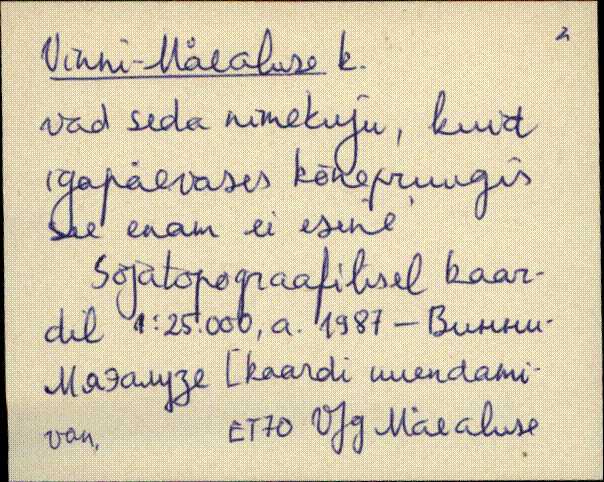 2
Vinni-Mäealuse k.
vad seda nimekuju, kuid
igapäevases kõnepruugis
see enam ei esine.
Sõjatopograafilisel kaar-
dil 1:25.000, a. 1987 — Винни-
Маэалузе [kaardi uuendami-
van, ET70 VJg Mäealuse